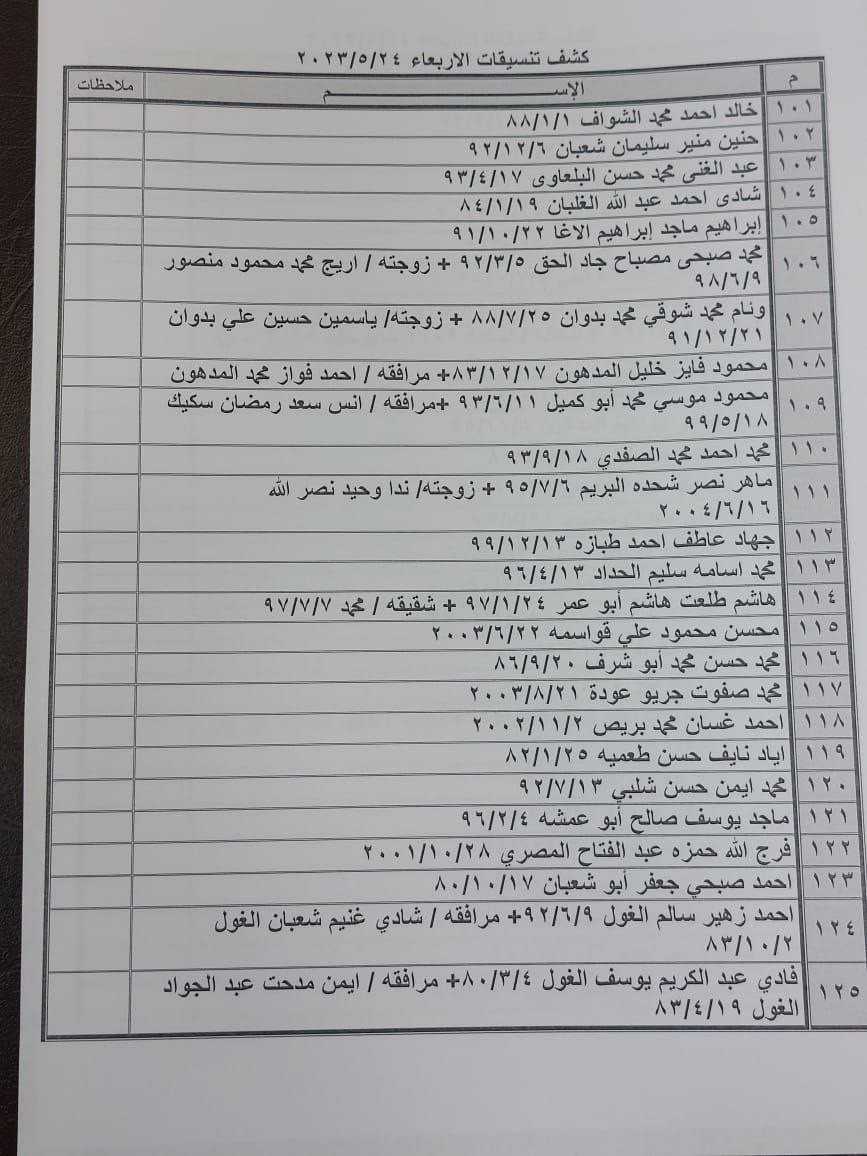 كشف تنسيقات الاربعاء ٢٠٢٣/٥/٢٤
م الإســـــــــــــــم ملاحظات
١٠١ خالد احمد محمد الشواف ٨٨/١/١
١٠٢ حنين منير سليمان شعبان ٩٢/١٢/٦
١٠٣ عبد الغنى محمد حسن البلعاوى ٩٣/٤/١٧
١٠٤ شادى احمد عبد الله الغلبان ٨٤/١/١٩
١٠٥ إبراهيم ماجد إبراهيم الاغا ٩١/١٠/٢٢
١٠٦ محمد صبحى مصباح جاد الحق ٩٢/٣/٥ + زوجته / اريج محمد محمود منصور
٩٨/٦/٩
١٠٧ ونام محمد شوقي محمد بدوان ٨٨/٧/٢٥ + زوجته/ ياسمين حسين علي بدوان
٩١/١٢/٢١
١٠٨ محمود فايز خليل المدهون ٨٣/١٢/١٧+ مرافقه / احمد فواز محمد المدهون
١٠٩ محمود موسي محمد أبو كميل ٩٣/٦/١١ +مرافقه / انس سعد رمضان سكيك
٩٩/٥/١٨
١١٠ محمد احمد محمد الصفدي ٩٣/٩/١٨
١١١ ماهر نصر شحده البريم ٩٥/٧/٦ + زوجته/ ندا وحيد نصر الله
٢٠٠٤/٦/١٦
١١٢ جهاد عاطف احمد طبازه ٩٩/١٢/١٣
١١٣ محمد اسامه سليم الحداد ٩٦/٤/١٣
١١٤ هاشم طلعت هاشم أبو عمر ٩٧/١/٢٤ + شقيقه / محمد ٩٧/٧/٧
١١٥ محسن محمود علي قواسمه ٢٠٠٣/٦/٢٢
١١٦ محمد حسن محمد أبو شرف ٨٦/٩/٢٠
١١٧ محمد صفوت جريو عودة ٢٠٠٣/٨/٢١
١١٨ احمد غسان محمد بريص ٢٠٠٢/١١/٢
١١٩ اياد نايف حسن طعميه ٨٢/١/٢٥
١٢٠ محمد ايمن حسن شلبي ٩٢/٧/١٣
١٢١ ماجد يوسف صالح أبو عمشه ٩٦/٢/٤
١٢٢ فرج الله حمزه عبد الفتاح المصري ٢٠٠١/١٠/٢٨
١٢٣ احمد صبحي جعفر أبو شعبان ٨٠/١٠/١٧
١٢٤ احمد زهير سالم الغول ٩٢/٦/٩+ مرافقه / شادي غنيم شعبان الغول
٨٣/١٠/٢
١٢٥ فادي عبد الكريم يوسف الغول ٨٠/٣/٤+ مرافقه / ايمن مدحت عبد الجواد
الغول ٨٣/٤/١٩